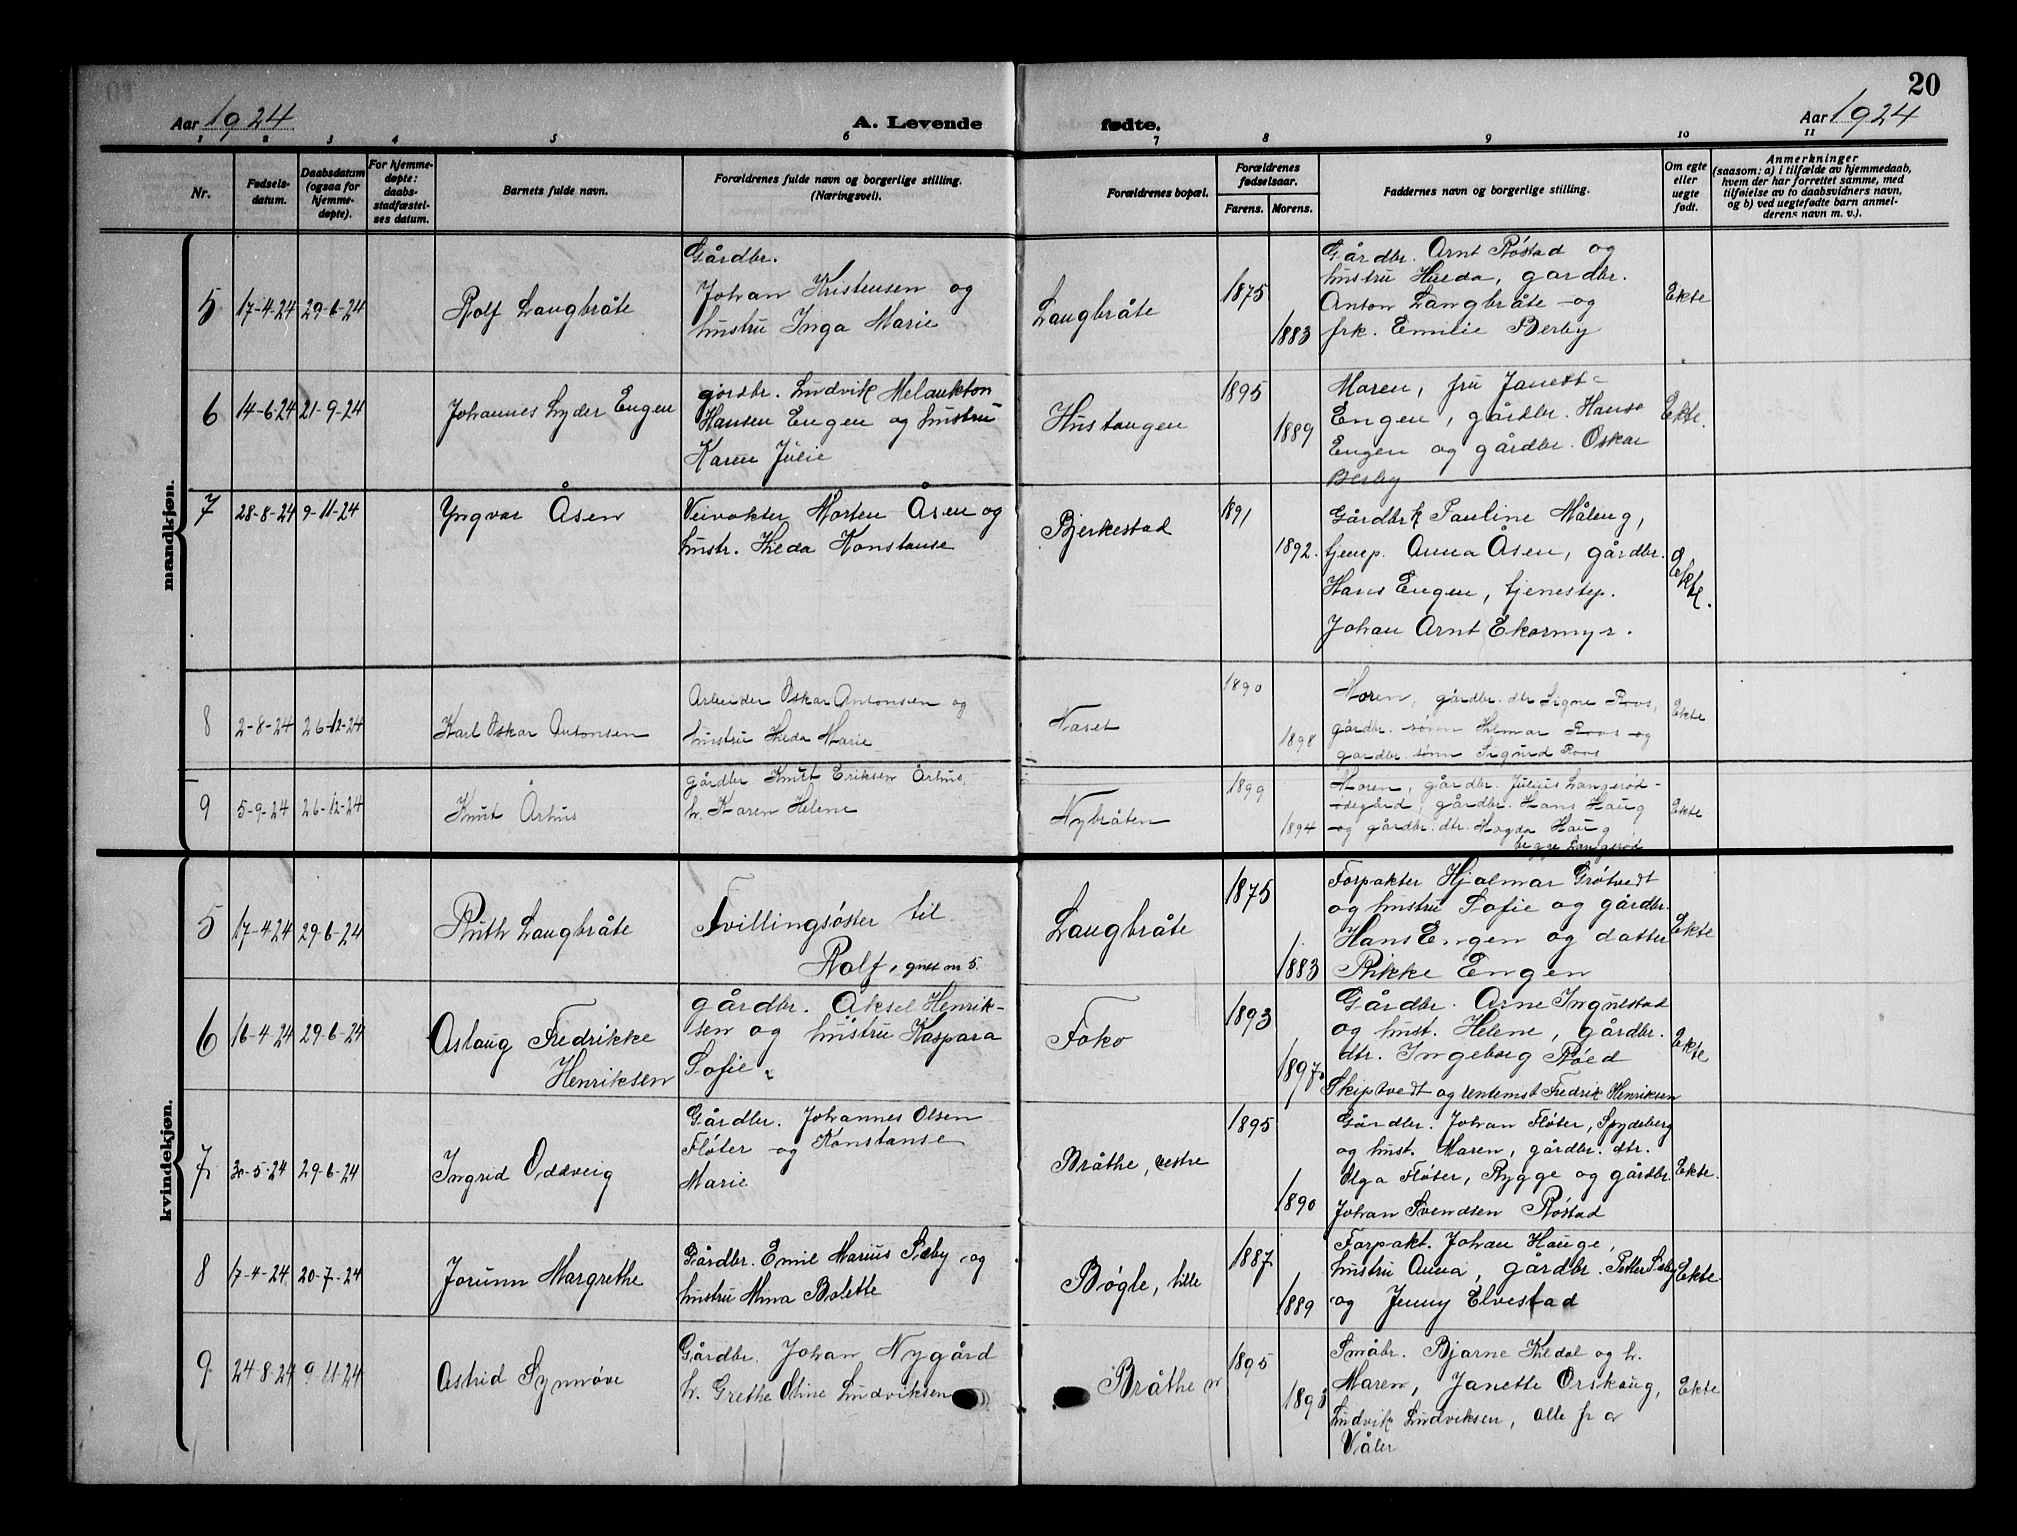 20
Aar 1924
A. Levende fødte.
Aar 1924
1 2 3 4 5 6 7 8 9 10 11
Nr.
Fødsels-
datum.
Daabsdatum
(ogsaa for
hjemme-
døpte).
For hjemme-
døpte:
daabs-
stadfæstel-
ses datum.
Barnets fulde navn.
Forældrenes fulde navn og borgerlige stilling.
(Næringsvei).
Forældrenes bopæl.
Forældrenes
fødselsaar.
Farens. Morens.
Faddernes navn og borgerlige stilling.
Om egte
eller
uegte
født.
Anmerkninger
(saasom: a) i tilfælde av hjemmedaab,
hvem der har forrettet samme, med
tilføielse av to daabsvidners navn,
og b) ved uegtefødte barn anmel-
derens navn m. v.).
mandkjøn.
5 17-4-24 29-6-24
Rolf Langbråte
Gårdbr.
Johan Kristensen og
hustru Inga Marie
Langbråte
1875
1883
Gårdbr. Arnt Røstad og
hustru Hilda, gardbr.
Anton Langbråte og
frk. Emilie Berby
Ekte
6 14-6-24 21-9-24
Johannes Lyder Engen
gårdbr. Ludvik Melankton
Hansen Engen og hustru
Karen Julie
Hustangen
1895
1889
Maren, fru Janette
Engen, gårdbr. Hans
Engen og gårdbr. Oskar
Berby
Ekte.
7 28-8-24 9-11-24
Yngvar Åsen
Veivokter Morten Åsen og
hustr. Hilda Konstanse
Bjerkestad
1891
1892.
Gårdbrk Pauline Måleng,
tjenep. Anna Åsen, gårdbr.
Hans Engen, tjenestep.
Johan Arnt Ekornmyr.
Ekte.
8 2-8-24 26-12-24
Karl Oskar Antonsen
Arbeider Oskar Antonsen og
hustru Hilda Marie
Naset
1890
1898
Moren, gårdbr. dtr Signe Roos,
gårdbr. sønn Hilmar Roos og
gardbr. sønn Sigurd Roos
Ekte
9 5-9-24 26-12-24
Knut Århus
gårdbr Knut Eriksen Århus,
h. Karen Helene
Nybråten
1899
1894
Moren, gårdbr. Julius Langerød-
ødegård, gårdbr. Hans Haug
og gårdbr. dtr. Magda Haug
begge Langerød
Ekte
kvindekjøn.
5 17-4-24 29-6-24
Ruth Langbråte
Tvillingsøster til
Rolf, gutt nr 5.
Langbråte
1875
1883
Forpakter Hjalmar Grøtvedt
og hustru Sofie og gårdbr.
Hans Engen og datter
Rikke Engen
Ekte
6 16-4-24 29-6-24
Aslaug Fredrikke
Henriksen
gårdbr. Aksel Henrik-
sen og hustru Kaspara
Sofie
Foko
1893
1897.
Gårdbr. Arne Ingulstad
og hust. Helene, gårdbr.
dtr. Ingeborg Røed
Skiptvedt og rentemst Fredrik Henriksen
Ekte
7 30-5-24 29-6-24
Ingrid Oddveig
Gårdbr. Johannes Olsen
Fløter og Konstanse
Marie
Bråthe, vestre
1895
1890
Gårdbr. Johan Fløter, Spydeberg
og hust. Maren, gårdbr. dtr.
Olga Fløter, Rygge og gårdbr.
Johan Svendsen Røstad
Ekte.
8 17-4-24 20-7-24
Jorunn Margrethe
Gårdbr. Emil Marius Sæby og
hustru Mina Bolette
Bøgle, lille
1887
1889
Forpakt. Johan Hauge,
hustru Anna, gårdbr. Petter Sæby
og Jenny Elvestad
Ekte
9 24-8-24 9-11-24
Astrid Synnøve
Gårdbr. Johan Nygård
h. Grethe Oline Ludviksen
Bråthe n
1895
1893
Småbr. Bjarne Kildal og h.
Maren, Janette Orskaug,
Ludvik Ludviksen, alle fr a
Våler
Ekte